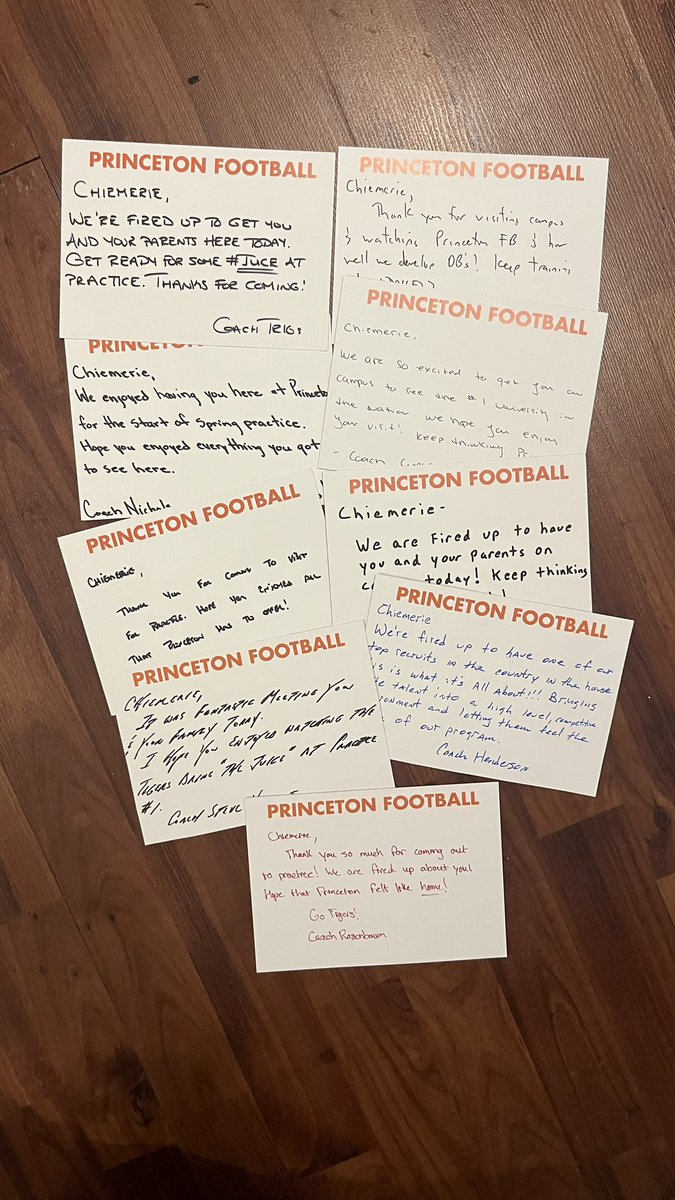 PRINCETON FOOTBALL
CHIEMERIE,
WE'RE FIRED UP TO GET YOU
AND YOUR PARENTS HERE TODAY.
GET READY FOR SOME #JUICE AT
PRACTICE. THANKS FOR COMING!
COACH TRIGS
PRINCETON FOOTBALL
Chiemerie,
Thank you for visiting campus
& watching Princeton FB & how
well we develop DB's! Keep training
PRINCETON
Chiemerie,
We enjoyed having you here at Princeton
for the start of Spring practice.
Hope you enjoyed everything you got
to see here.
Coach Nichols
PRINCETON FOOTBALL
Chiemerie,
We are so excited to get you on
campus to see the #1 University in
the nation. We hope you enjoy
your visit! Keep thinking
- Coach
PRINCETON FOOTBALL
CHIEMERIE,
THANK YOU FOR COMING TO VISIT
FOR PRACTICE. HOPE YOU ENJOYED ALL
THAT PRINCETON HAS TO OFFER!
PRINCETON FOOTBALL
Chiemerie-
We are Fired up to have
you and your parents on
today! Keep thinking
PRINCETON FOOTBALL
CHIEMERIE,
IT WAS FANTASTIC MEETING YOU
& YOUR FAMILY TODAY.
I HOPE YOU ENJOYED WATCHING THE
TIGERS BRING "THE JUICE" AT PRACTICE
#1.
COACH STEVE
PRINCETON FOOTBALL
Chiemerie
We're fired up to have one of our
top recruits in the country in the house
is what it's All About!!! Bringing
talent into a high level, competitive
and letting them feel the
of our program.
Coach Henderson
PRINCETON FOOTBALL
Chiemerie,
Thank you so much for coming out
to practice! We are fired up about you!
Hope that Princeton felt like home!
Go Tigers!
Coach Rosenbaum